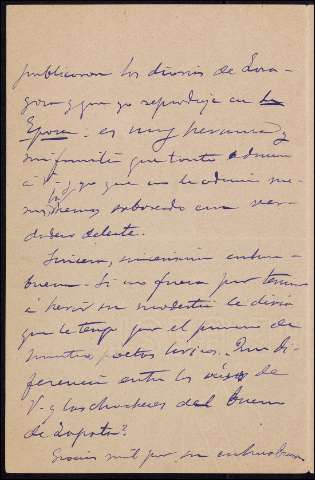 publicaron los diarios de Zara-
goza y que yo reproduje en la
Epoca. es muy hermosa y
mi familia que tanto admira
á V. y yo que no le admiro me-
nos, la hemos saboreado con ver-
dadero deleite.
Sincera, sincerisima enhora-
buena. Si no fuera por temor
á herir su modestia le diria
que le tengo por el primero de
nuestros poetas liricos. Que di-
ferencia entre los versos de
V. y los del bueno
de Zapata?
Gracias mil por su enhorabuena